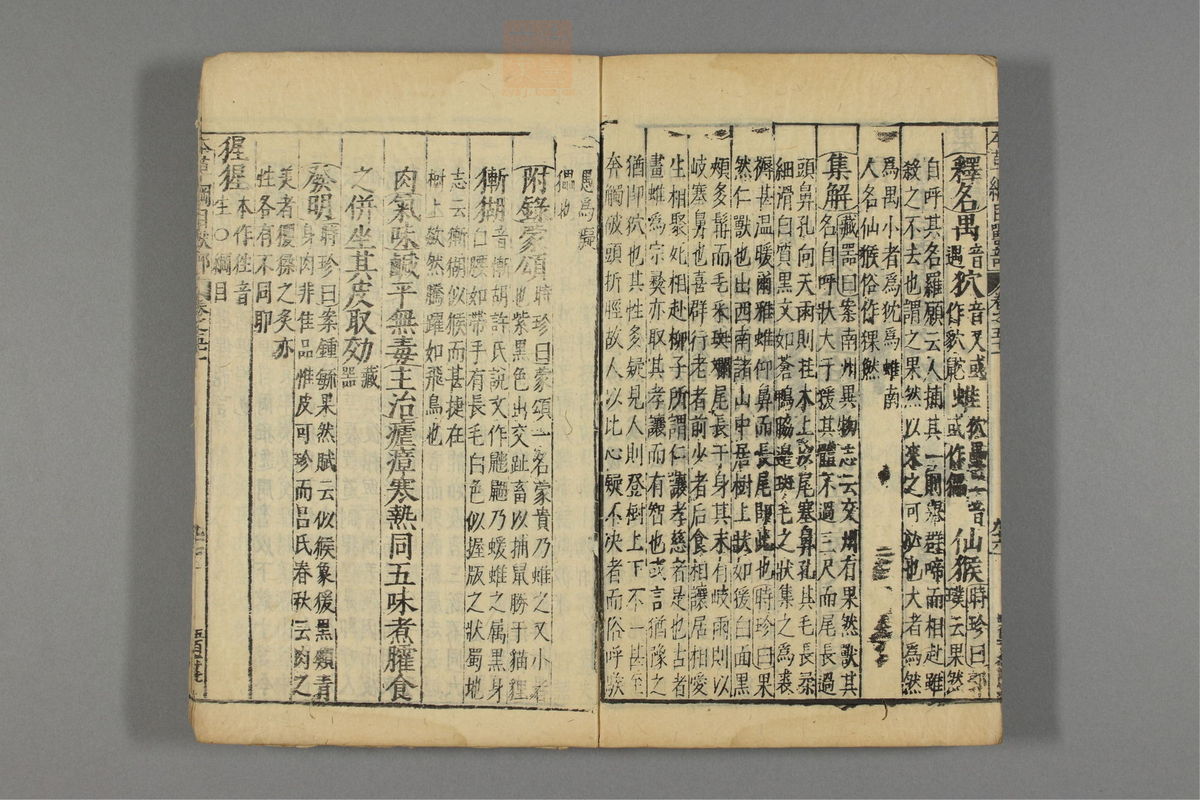 釋名禺音遇狖音又或作貁㺠蜼或作𤡔 仙猴時珍曰郭璞云果然
自呼其名羅願云人捕其一則舉群啼而相赴雖
殺之不去也謂之果然以來之可必也大者為然
為禺小者為狖為蜼南
人名仙猴俗作猓然
集解藏器曰案南州異物志云交州有果然獸其
名自呼狀大于猨其體不過三尺而尾長過
頭鼻孔向天雨則挂木上以尾塞鼻孔其毛長柔
細滑白質黑文如蒼鴨脇邊斑毛之狀集之為裘
褥甚温暖爾雅蜼仰鼻而長尾即此也時珍曰果
然仁獸也出西南諸山中居樹上狀如猨白面黑
頰多髯而毛采斑斕尾長于身其末有岐雨則以
岐塞鼻也喜群行老者前少者后食相讓居相愛
生相聚死相赴柳子所謂仁讓孝慈者是也古者
畫蜼為宗彝亦取其孝讓而有智也或言猶豫之
猶即狖也其性多疑見人則登樹上下不一甚至
奔觸破頭折脛故人以比心疑不决者而俗呼騃
愚為癡
㺐也
附錄蒙頌時珍曰蒙頌一名蒙貴乃蜼之又小者
也紫黑色出交趾畜以捕鼠勝于猫狸
獑猢音慚胡許氏說文作䶂䶅乃蝯蜼之属黑身
白腰如帶手有長毛白色似握版之狀蜀地
志云獑猢似猴而甚捷在
樹上歘然騰躍如飛鳥也
肉氣味鹹平無毒主治瘧瘴寒熱同五味煮臛食
之併坐其皮取効藏器
發明時珍曰案鍾毓果然賦云似猴象猨黑頰青
身肉非佳品惟皮可珍而吕氏春秋云肉之
美者玃猱之炙亦
性各有不同耶
猩猩本作狌音生○綱目